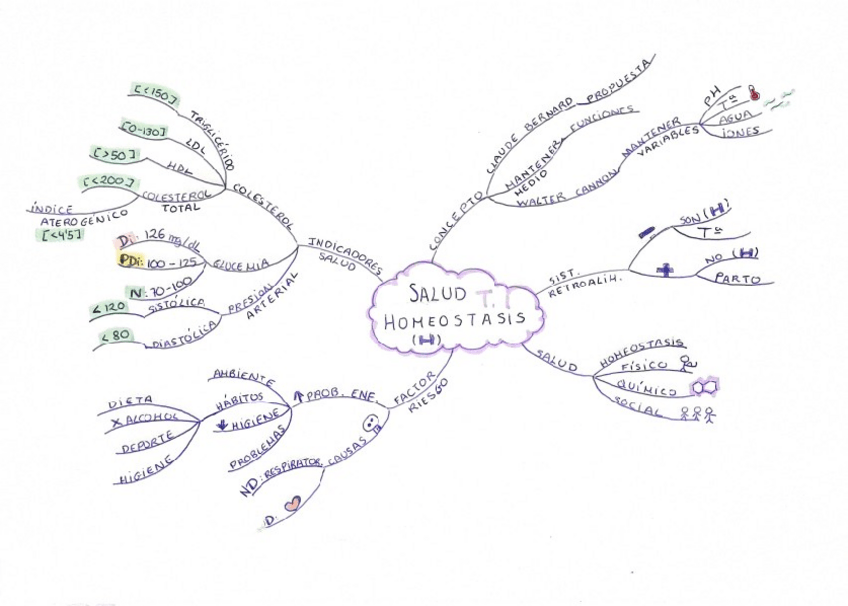 SALUD T.1
HOMEOSTASIS
(H)
CONCEPTO
CLAUDE BERNARD
PROPUESTA
WALTER CANNON
MANTENER
MEDIO
FUNCIONES
MANTENER
VARIABLES
PH
Tª
AGUA
IONES
SIST.
RETROALIM.
-
SON (H)
Tª
+
NO (H)
PARTO
SALUD
HOMEOSTASIS
FÍSICO
QUÍMICO
SOCIAL
FACTOR
RIESGO
PROB. ENF.
AMBIENTE
HÁBITOS
DIETA
X ALCOHOL
DEPORTE
HIGIENE
HIGIENE
PROBLEMAS
CAUSAS
ND: RESPIRATOR.
D:
INDICADORES
SALUD
COLESTEROL
TRIGLICÉRIDO
[<150]
LDL
[0-130]
HDL
[>50]
COLESTEROL
TOTAL
[<200]
ÍNDICE
ATEROGÉNICO
[<4'5]
GLUCEMIA
Di: 126 mg/dL
PDi: 100-125
N: 70-100
PRESIÓN
ARTERIAL
SISTÓLICA
<120
DIASTÓLICA
<80